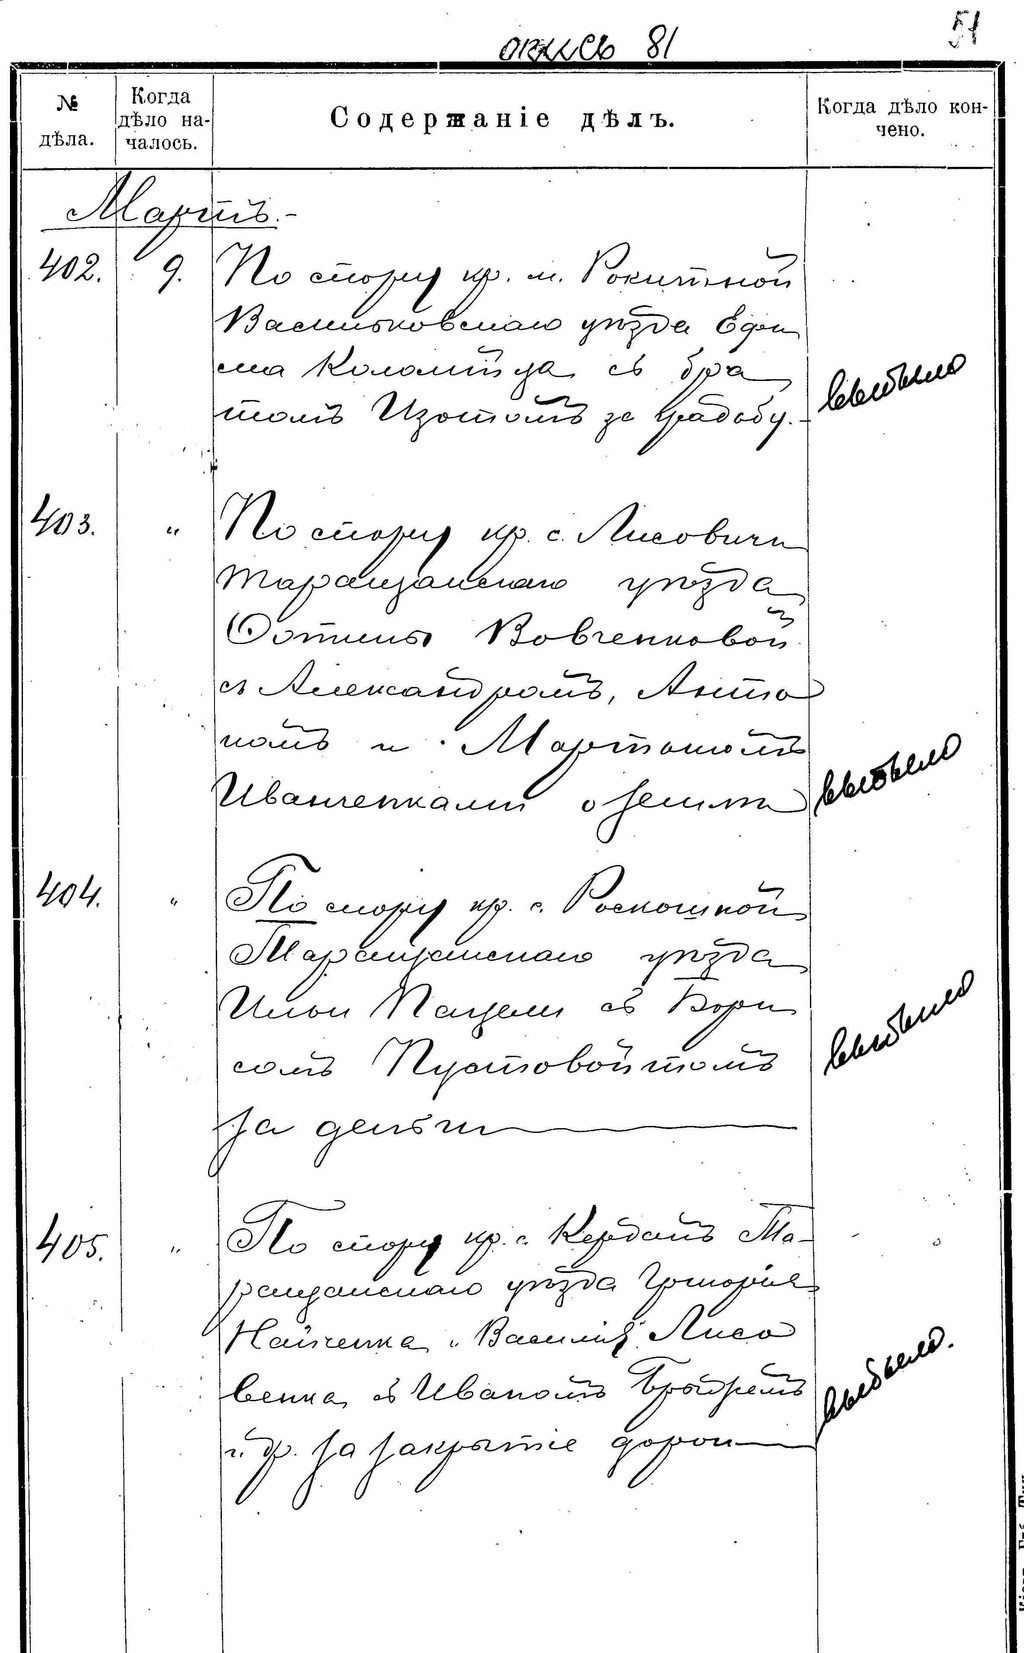 опись 81
51
№ дѣла.
Когда дѣло началось.
Содержаніе дѣлъ.
Когда дѣло кончено.
Мартъ.-
402. 9. По спору кр. м. Рокитной
Васильковскаго уѣзда Ефи
ма Коломійца съ бра
томъ Изотомъ за усадьбу.-
выбыло
403. " По спору кр. с. Лисовичи
Таращанскаго уѣзда
Устиньи Вовченковой
съ Александромъ, Анто
номъ и Мартыномъ
Иванченками о землѣ
выбыло
404. " По спору кр. с. Роскошной
Таращанскаго уѣзда
Ильи Пацели съ Бори
сомъ Пустовойтомъ
за деньги
выбыло
405. " По спору кр. с. Кердань Та-
ращанскаго уѣзда Григорія
Найченка и Василія Лисо
венка съ Иваномъ
и др. за закрытіе дороги
выбыло.